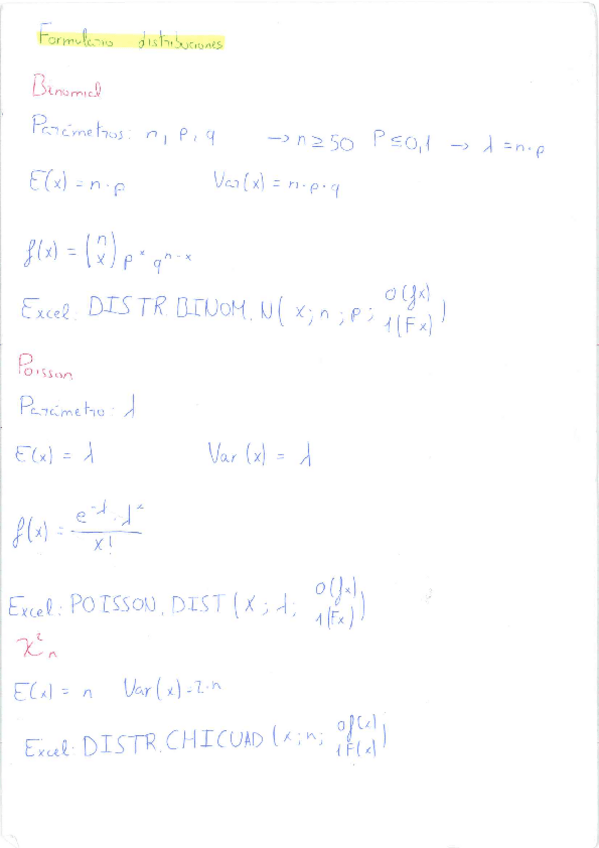 Formulario distribuciones
Binomial
Parámetros: n, p, q → n ≥ 50 P ≤ 0,1 → λ = n·p
E(x) = n·p Var(x) = n·p·q
f(x) = (n x) p^x q^n-x
Excel: DISTR.BINOM.N( x; n; p; 0(fx) 1(Fx) )
Poisson
Parámetro: λ
E(x) = λ Var(x) = λ
f(x) = e^-λ · λ^x / x!
Excel: POISSON.DIST( x; λ; 0(fx) 1(Fx) )
χ²n
E(x) = n Var(x) = 2·n
Excel: DISTR.CHICUAD (x; n; 0f(x) 1F(x) )